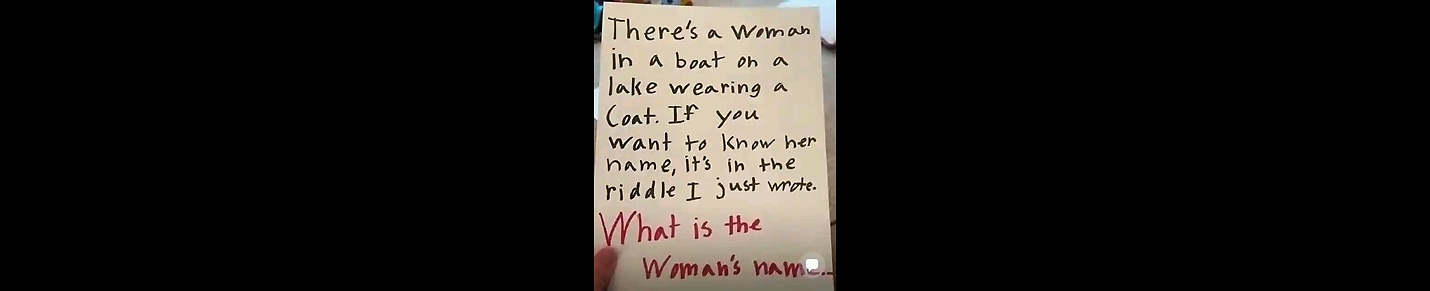 There's a Woman
in a boat on a
lake wearing a
Coat. If you
want to know her
name, it's in the
riddle I just wrote.
What is the
Woman's name..